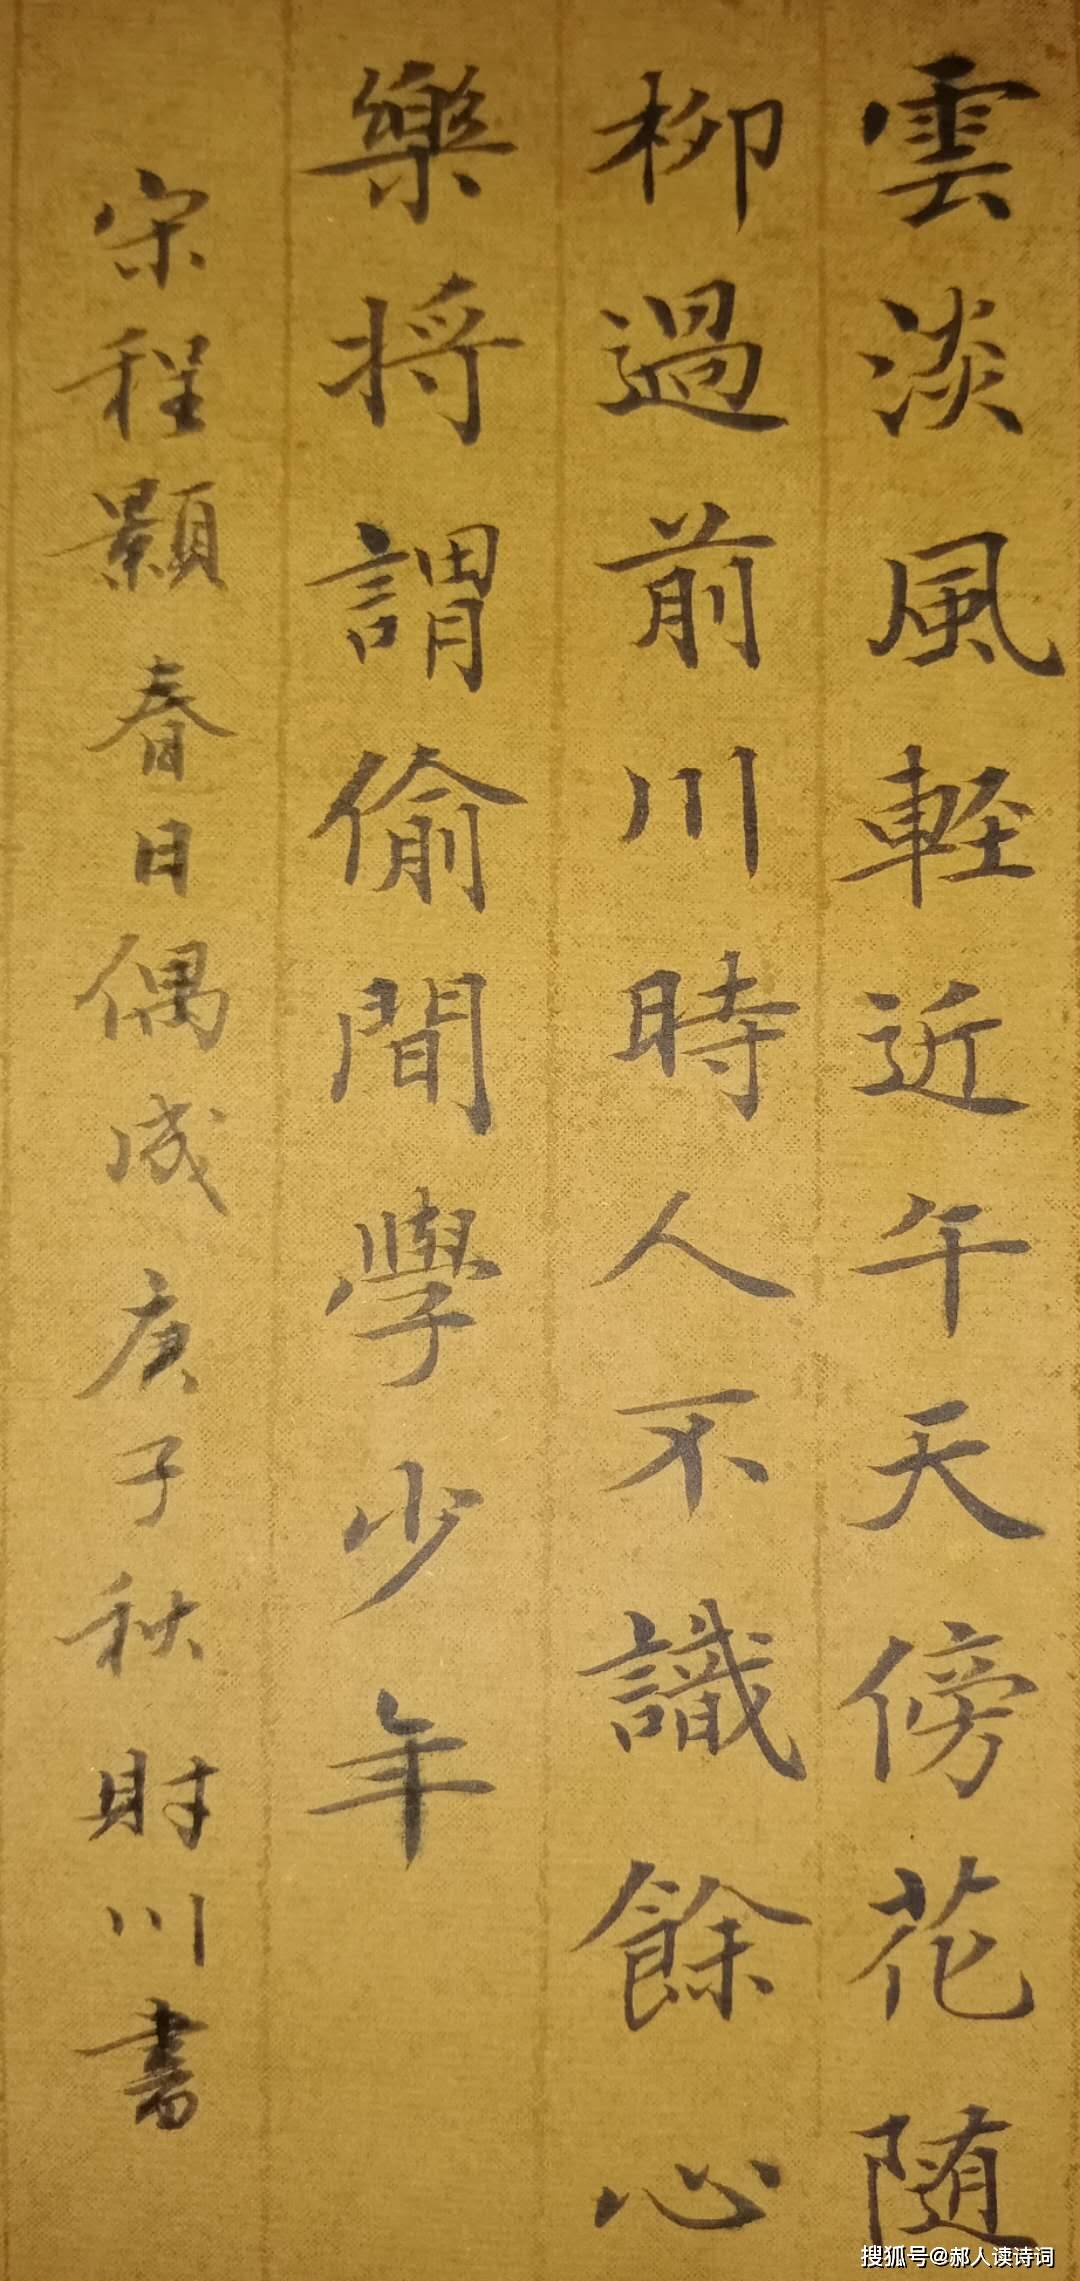 雲淡風軽近午天傍花随
柳過前川時人不識餘心
樂将謂偷閒學少年
宋程顥春日偶成庚子秋財川書
搜狐号@郝人读诗词